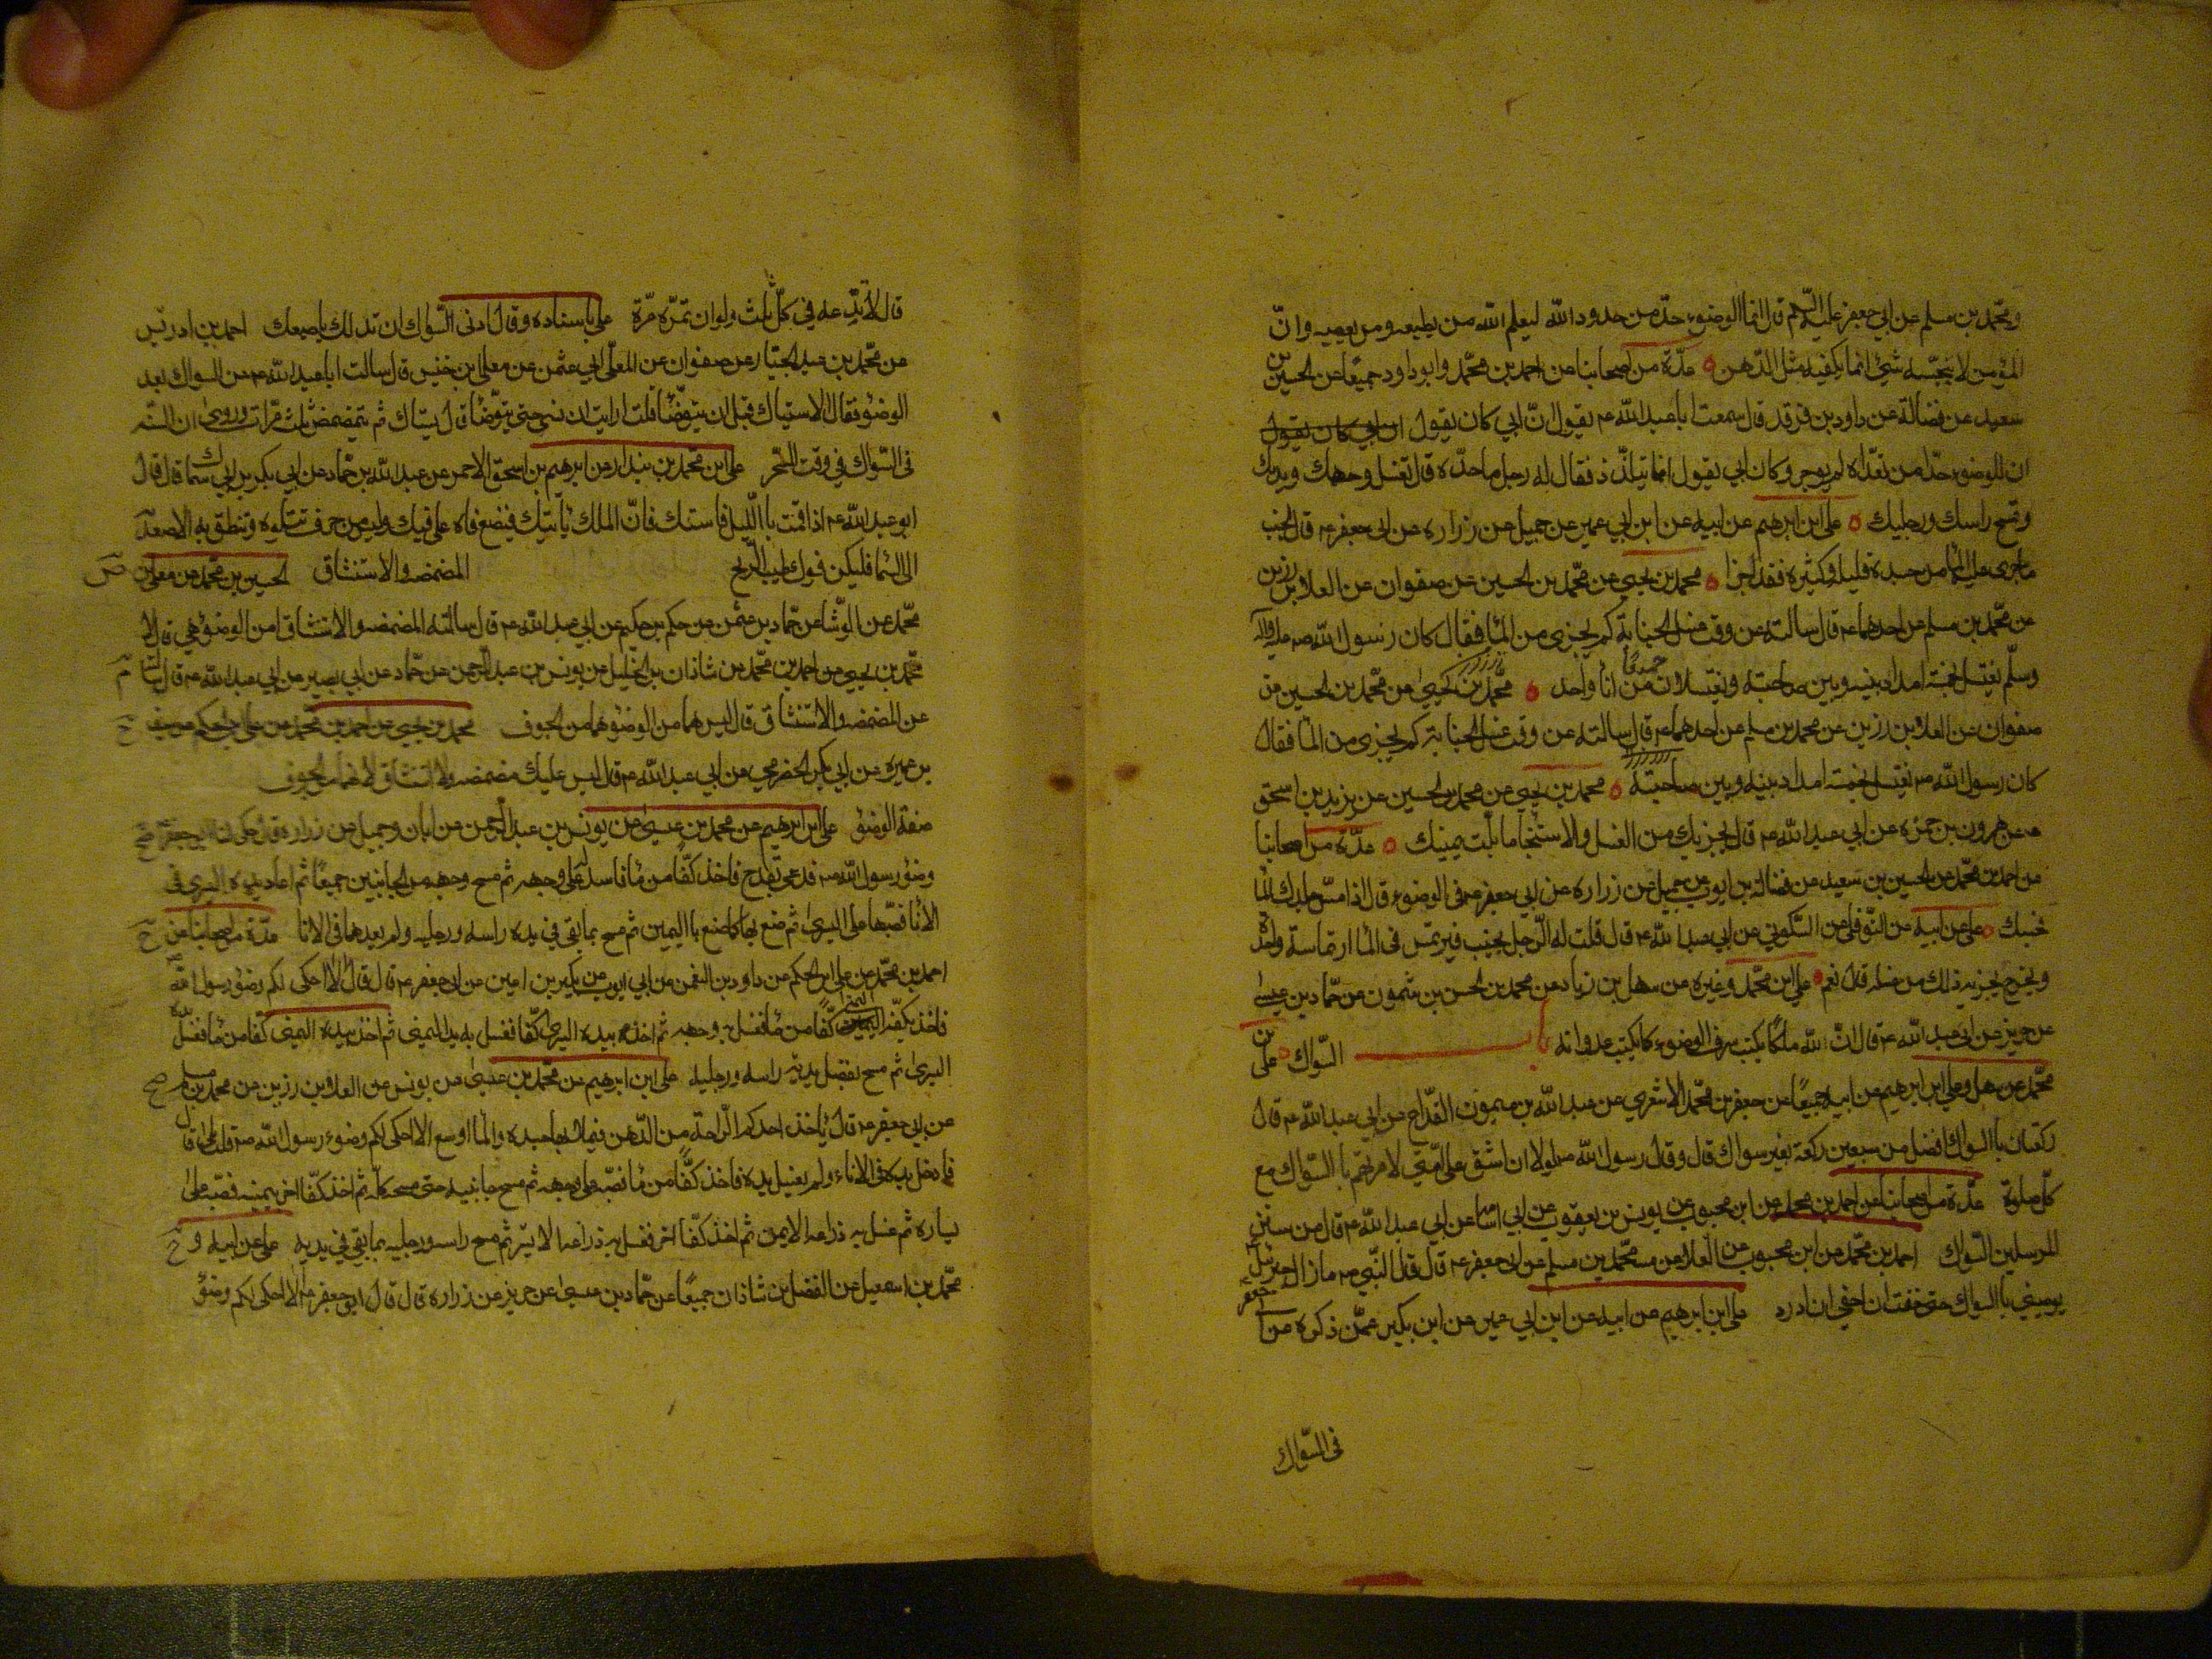 ومحمد بن مسلم عن ابي جعفر عليه السلام قال انما الوضوء حدّ من حدود الله ليعلم الله من يطيعه ومن يعصيه وانّ
المؤمن لا ينجّسه شئ انما يكفيه مثل الدّهن عدّة من اصحابنا عن احمد بن محمّد وابو داود جميعًا عن الحسين بن
سعيد عن فضالة عن داود بن فرقد قال سمعت ابا عبد الله ع يقول انّ ابي كان يقول ان ابي كان يقول
ان للوضوء حدّا من تعدّاه لم يوجر وكان ابي يقول انما يتلدّد فقال له رجل ما حدّه قال تغسل وجهك ويديك
وتمسح راسك ورجليك علي ابن ابرهيم عن ابيه عن ابن ابي عمير عن جميل عن زراره عن ابي جعفر ع قال الجنب
ما جرى عليه الماء من جسده قليله وكثيره فقد اجزا محمد بن يحيى عن محمّد بن الحسين عن صفوان عن العلا بن رزين
عن محمّد بن مسلم عن احدهما ع قال سالته عن وقت غسل الجنابة كم يجزي من الماء فقال كان رسول الله صه عليه واله
وسلّم يغتسل بخمسة امداد بينه وبين صاحبته ويغتسلان جميعًا من اناء واحد محمّد بن يحيى عن محمّد بن الحسين عن
صفوان عن العلا بن رزين عن محمد بن مسلم عن احدهما ع قال سالته عن وقت غسل الجنابة كم يجزي من الماء فقال
كان رسول الله صه يغتسل بخمسة امداد بينه وبين صاحبته محمد بن يحيى عن محمد بن الحسين عن يزيد بن اسحق
عن هرون بن حمزه عن ابي عبد الله ع قال يجزيك من الغسل والاستنجاء ما بلّت يمينك عدّة من اصحابنا
عن احمد بن محمّد عن الحسين بن سعيد عن فضالة بن ايوب عن جميل عن زراره عن ابي جعفر ع في الوضوء قال اذا مسّ جلدك الماء
فحسبك علي عن ابيه عن النّوفلي عن السّكوني عن ابي عبد الله ع قال قلت له الرّجل يجنب فيرتمس في الماء ارتماسة واحدة
ويخرج يجزيه ذلك من غسله قال نعم علي ابن محمّد وغيره عن سهل بن زياد عن محمد بن الحسن بن شمون عن حمّاد بن عيسى
عن حريز عن ابي عبد الله ع قال انّ لله ملكًا يكتب سرف الوضوء كما يكتب عدوانه باب السّواك علي بن
محمّد عن سهل وعلي ابن ابرهيم عن ابيه جميعًا عن جعفر بن محمّد الاشعري عن عبد الله بن ميمون القدّاح عن ابي عبد الله ع قال
ركعتان بالسّواك افضل من سبعين ركعة بغير سواك قال وقال رسول الله صه لولا ان اشق على امّتي لامرتهم بالسّواك مع
كلّ صلوة عدّة من اصحابنا عن احمد بن محمد عن ابن محبوب عن يونس بن يعقوب عن ابي اسامه عن ابي عبد الله ع قال من سنن
المرسلين السّواك احمد بن محمّد عن ابن محبوب عن العلا عن محمّد بن مسلم عن ابي جعفر ع قال قال النّبي صه ما زال جبرئيل
يوصيني بالسواك حتى خفت ان احفي او ادرد علي ابن ابرهيم عن ابيه عن ابن ابي عمير عن ابن بكير عمّن ذكره عن ابي جعفر ع
في السّواك
قال لا تدعه في كلّ ثلث ولو ان تمرّه مرّة علي باسناده وقال ادنى السّواك ان تدلك باصبعك احمد بن ادريس
عن محمّد بن عبد الجبّار عن صفوان عن المعلّى ابي عثمن عن معلى ابن خنيس قال سالت ابا عبد الله ع عن السواك بعد
الوضؤ فقال الاستياك قبل ان يتوضّا قلت ارايت ان نسي حتى يتوّضا قال يستاك ثم يتمضمض ثلث مرّات وروي ان السنّة
في السّواك في وقت السّحر علي ابن محمّد بن بندار عن ابرهيم بن اسحق الاحمر عن عبد الله بن حمّاد عن ابي بكر بن ابي سماك قال قال
ابو عبد الله ع اذا قمت بالّليل فاستك فانّ الملك يأتيك فيضع فاه على فيك وليس من حرف تتلوه وتنطق به الا صعد
الى السّماء فليكن فوك طيب الرّيح المضمضه والاستنشاق الحسين بن محمّد عن معلى بن
محمّد عن الوشّا عن حمّاد بن عثمن عن حكم بن حكيم عن ابي عبد الله ع قال سالته المضمضه والاستنشاق امن الوضؤ هي قال لا
محّمد بن يحيى عن احمد بن محمّد عن شاذان بن الخليل عن يونس بن عبد الرّحمن عن حمّاد عن ابي بصير عن ابي عبد الله ع قال
عن المضمضه والاستنشاق قال ليس هما من الوضؤ هما من الجوف محمد بن يحيى عن احمد بن محمّد عن علي بن الحكم عن سيف
بن عميره عن ابي بكر الحضرمي عن ابي عبد الله ع قال ليس عليك مضمضه ولا استنشاق لانهما من الجوف
صفة الوضؤ علي ابن ابرهيم عن محمد بن عيسى عن يونس بن عبد الرّحمن عن ابان وجميل عن زراره قال حكى لنا ابو جعفر ع
وضؤ رسول الله صه فدعى بقدح فاخذ كفًّا من ماء فاسدله على وجهه ثم مسح وجهه من الجانبين جميعًا ثم اعاد يده اليسرى في
الاناء فصبّها على اليسرى ثم صنع بها كما صنع باليمين ثم مسح بما بقي في يده راسه ورجليه ولم يعدهما في الاناء عدّة من اصحابنا عن
احمد بن محمّد عن علي ابن الحكم عن داود بن النعمن عن ابي ايوب عن بكير بن اعين عن ابي جعفر ع قال قال الا احكي لكم وضؤ رسول الله صه
فاخذ بكفّه اليمنى كفًّا من ماء فغسل به وجهه ثم اخذ بيده اليسرى كفّا فغسل به يده اليمنى ثم اخذ بيده اليمنى كفّا من ماء فغسل به يده
اليسرى ثم مسح بفضل يديه راسه ورجليه علي ابن ابرهيم عن محمّد بن عيسى عن يونس عن العلا بن رزين عن محمد بن مسلم
عن ابي جعفر ع قال يأخذ احدكم الرّاحة من الدّهن فيملأ بها جسده والماء اوسع الا احكي لكم وضوء رسول الله صه قلت بلى قال
فادخل يده في الاناء ولم يغسل يده فاخذ كفًّا من ماء فصبّه على وجهه ثم مسح جانبيه حتى مسحه كلّه ثم اخذ كفّا اخر بيمينه فصبّه على
يساره ثم غسل به ذراعه الايمن ثم اخذ كفّا اخر فغسل به ذراعه الايسر ثم مسح راسه ورجليه بما بقي في يديه علي عن ابيه و
محمّد بن اسمعيل عن الفضل بن شاذان جميعًا عن حمّاد بن عيسى عن حريز عن زراره قال قال ابو جعفر ع الا احكي لكم وضؤ